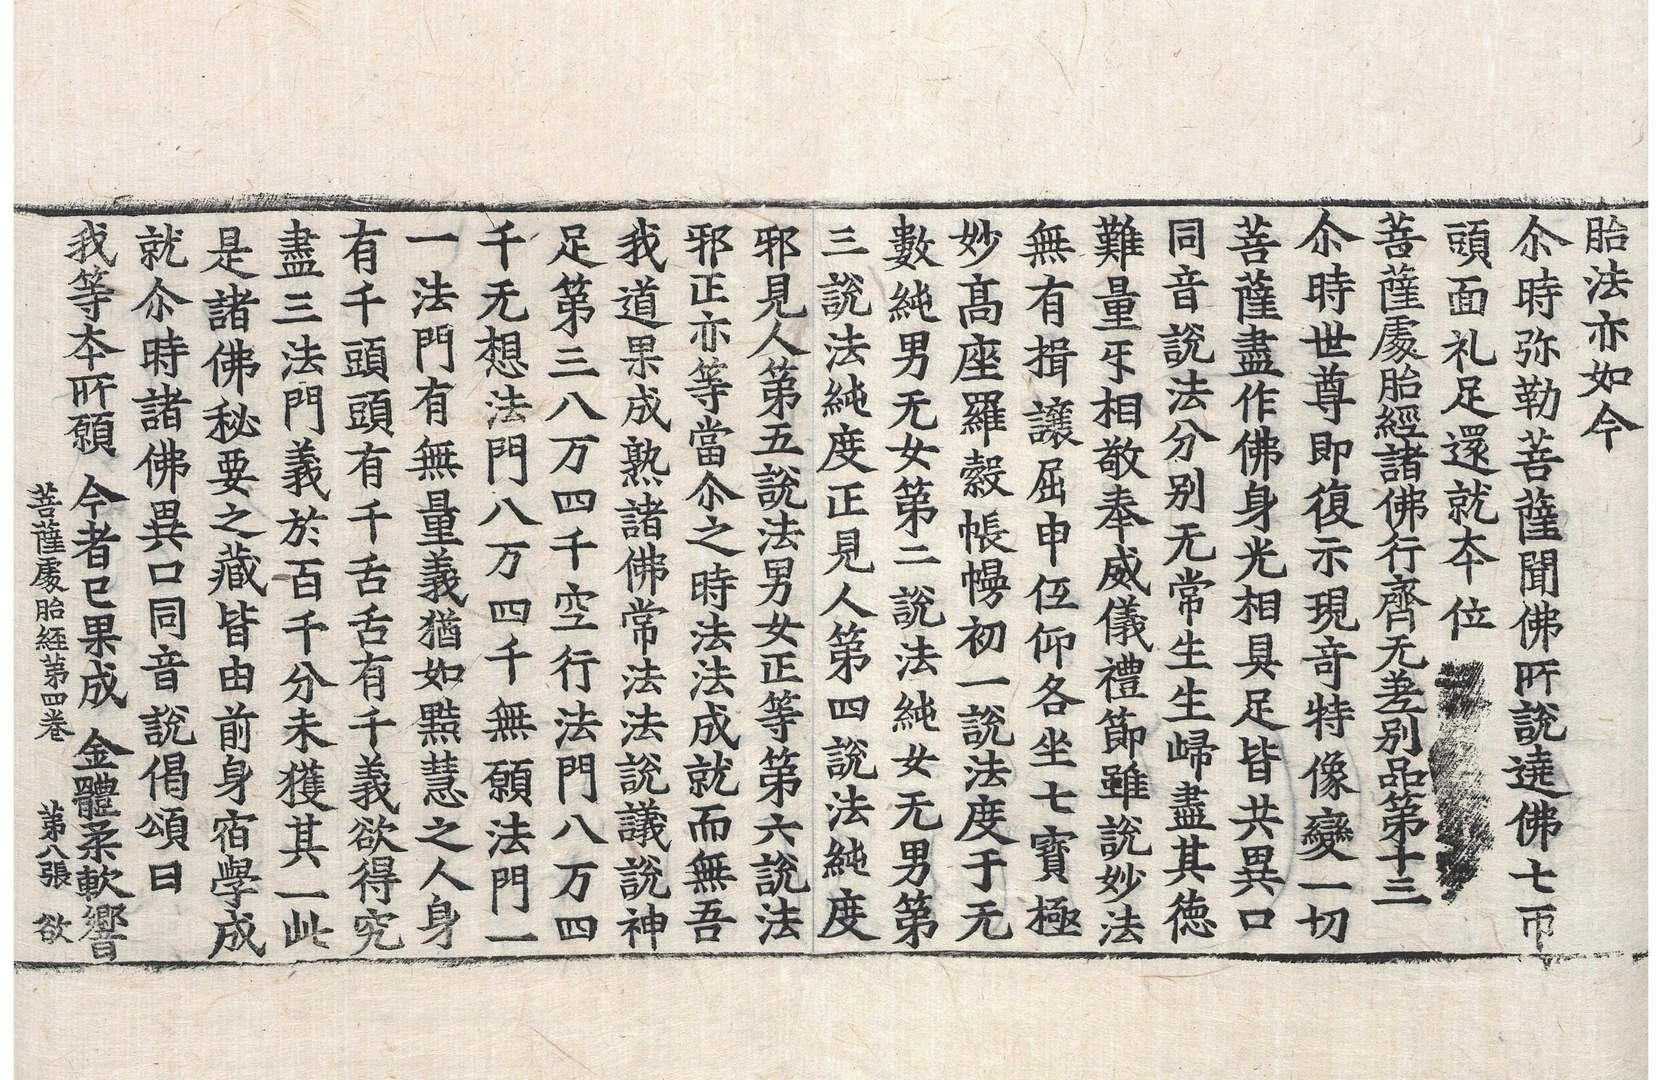 胎法亦如今
尒時弥勒菩薩聞佛所說遶佛七帀
頭面礼足還就本位
菩薩處胎經諸佛行齊无差別品第十三
尒時世尊即復示現竒特像變一切
菩薩盡作佛身光相具足皆共異口
同音說法分別无常生生㱕盡其徳
難量㸦相敬奉威儀禮節雖說妙法
無有揖讓屈申伍仰各坐七寳極
妙髙座羅縠帳幔初一說法度于无
數純男无女第二說法純女无男第
三說法純度正見人第四說法純度
邪見人第五說法男女正等第六說法
邪正亦等當尒之時法法成就而無吾
我道果成熟諸佛常法法說議說神
足第三八万四千空行法門八万四
千无想法門八万四千無願法門一
一法門有無量義猶如黠慧之人身
有千頭頭有千舌舌有千義欲得究
盡三法門義於百千分未獲其一此
是諸佛秘要之藏皆由前身宿學成
就尒時諸佛異口同音說偈頌曰
我等夲所願　今者已果成　金體柔軟響
菩薩處胎經第四卷　第八張　欲